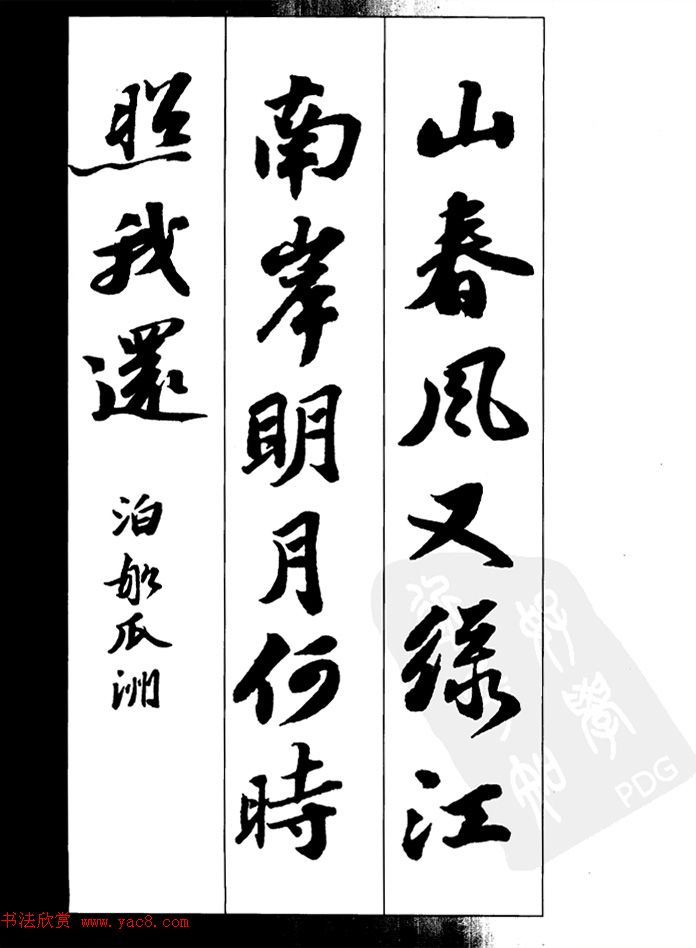 山春风又綠江
南岸明月何時
照我還
泊船瓜洲
PDG
书法欣赏 www.yac8.com